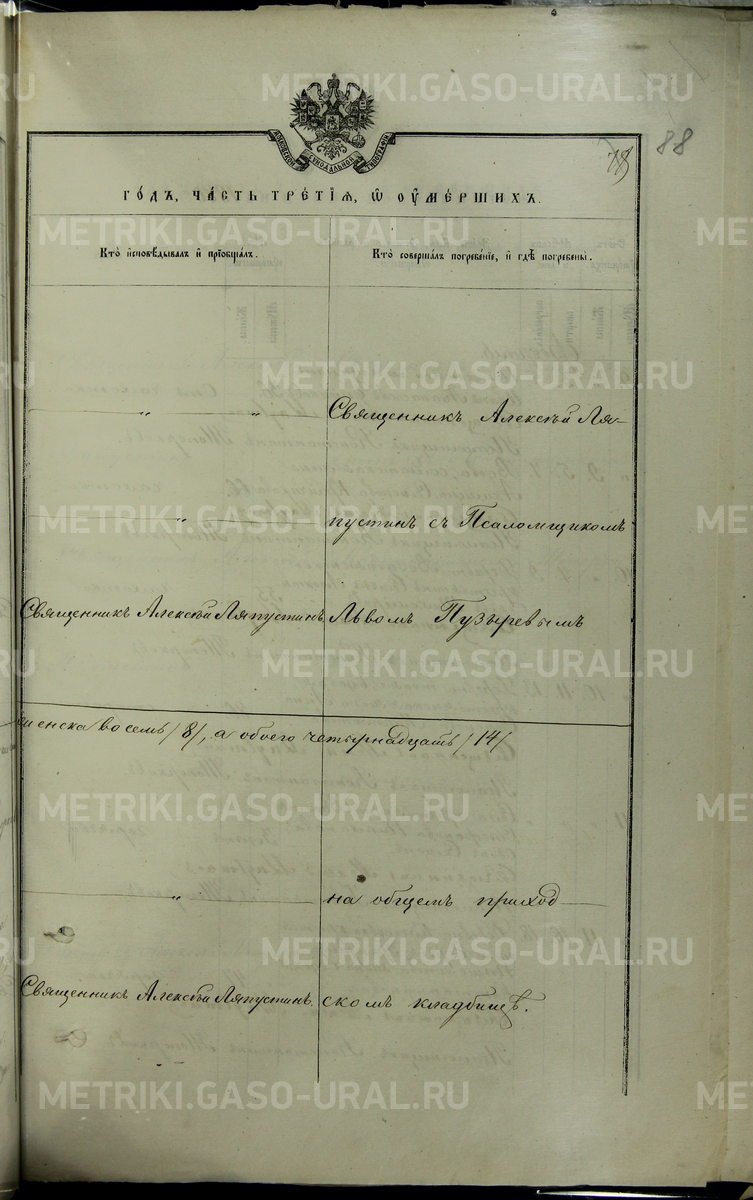 METRIKI.GASO-URAL.RU
88
МОСКОВСКОЙ СѴНОДАЛЬНОЙ ТИПОГРАФІИ
78
ГО́ДЪ, ЧА́СТЬ ТРЕ́ТІѦ, Ѿ ОУ҆МЕ́РШИХЪ.
Кто̀ и҆сповѣ́дывалъ и҆ прїѡбща́лъ.
Кто̀ соверша́лъ погребе́нїе, и҆ гдѣ̀ погребены̀.
„ „ Священникъ Алексѣй Ля-
„ пустинъ съ Псаломщикомъ
Священникъ Алексѣй Ляпустинъ. Львомъ Пузыревымъ
женска восемь /8/, а обоего четырнадцать /14/
„ на общемъ приход-
Священникъ Алексѣй Ляпустинъ. скомъ кладбищѣ.